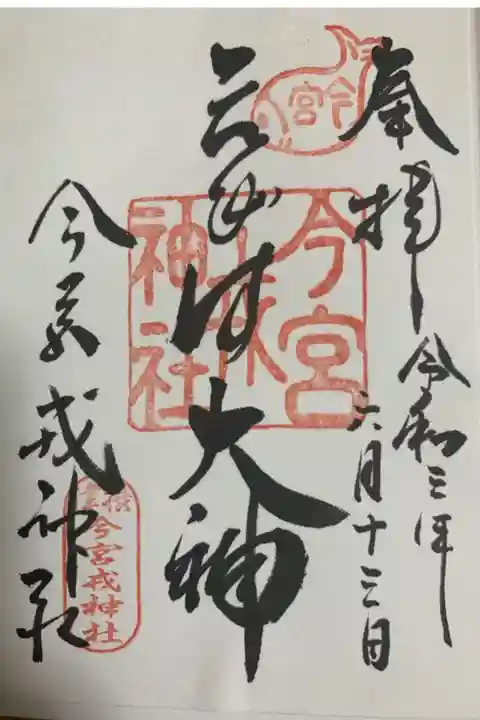 奉拝
令和三年
六月十三日
今宮
大神
今宮戎神社
今宮戎神社
今宮戎神社